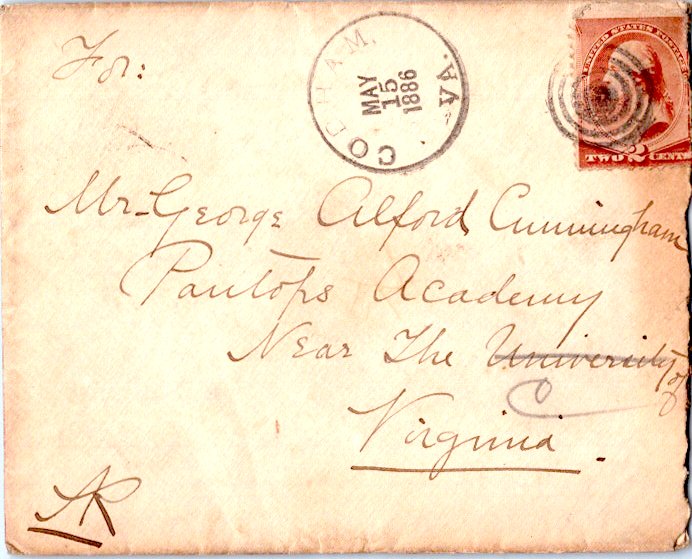 For:
COBHAM, VA.
MAY
15
1886
UNITED STATES POSTAGE
TWO 2 CENTS
Mr. George Alford Cunningham
Pantops Academy
Near The University of
Virginia.